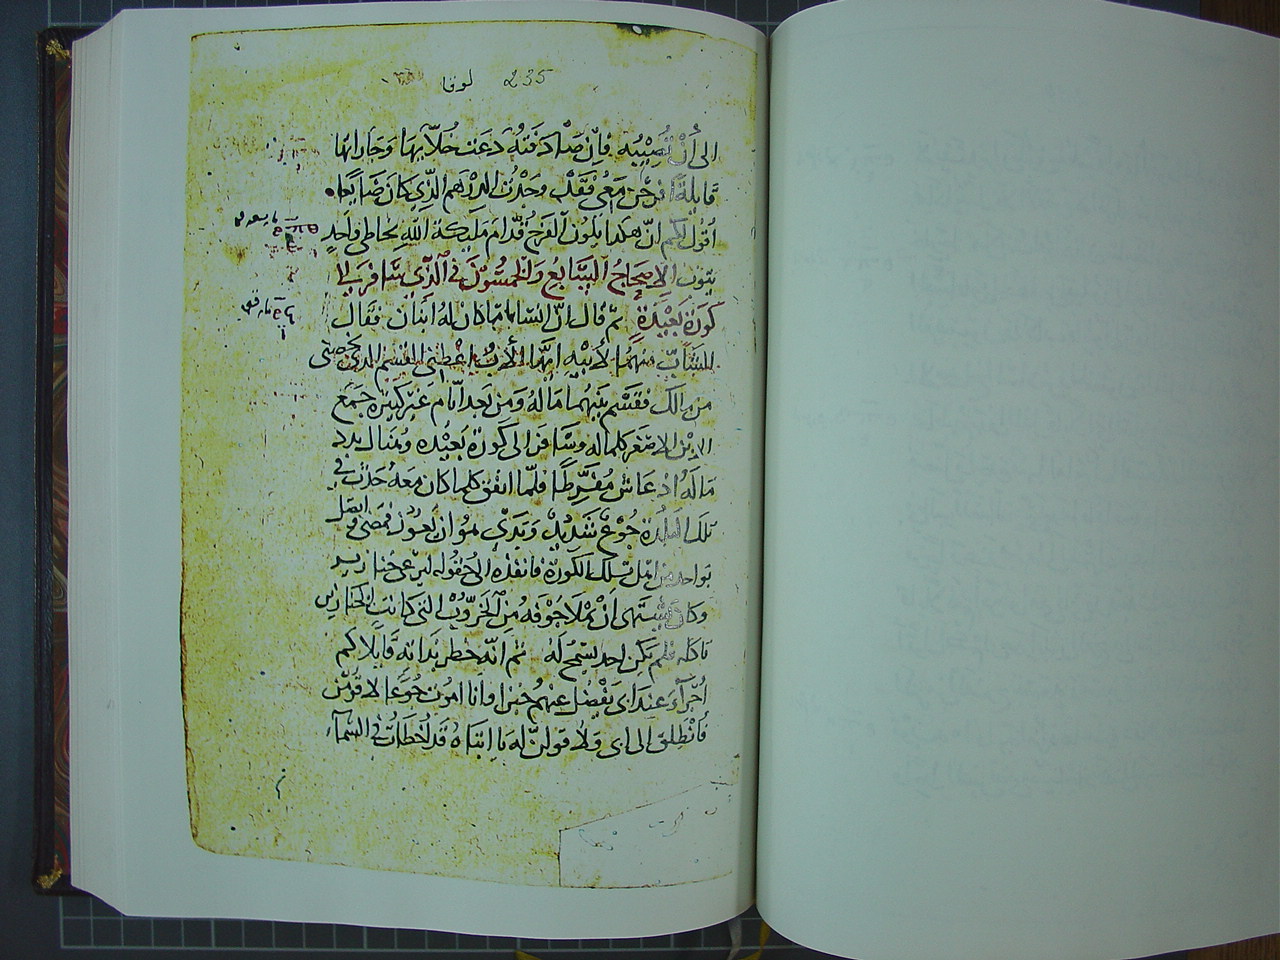 لوقا 235
الى أن تُصيبه فإن صَادَفَتهُ دَعَت خُلّانها وَجَاراتها
قايلةً افرحن مَعي فَقَد وَجَدت الدِرهَم الذِي كان ضَايعًا
أقول لكم انّ هكذا يكون الفرح قدام مليكة الله بخاطى وَاحدٍ
يتوب الاصحاح السَّابع والخمسُون في الذي سافر الي
كورة بَعيدة ثم قال انّ انسانا ما كان لهُ ابنان فقال
الشابّ منهُما لأبيْهِ ايّها الأب اعْطني القسم الذي يخصّني
من مالك فقسَم بَينهما مَالهُ وَمن بَعد ايّام غَير كثيرَه جَمعَ
الابن الاصغر كلما له وسَافر الى كورة بَعيْده وهناك بدد
مَالهُ اذ عَاش مُفَرِّطًا فلمّا انفق كلما كان مَعهُ حَدَث في
تلك البلدة جُوع شَديدٌ وَبَدي هوَ ان يَعوز فمضى واتصل
بواحد من اهل تلك الكورَة فانفذه الى حُقوله ليرعى خنازير
وكان يَشتهى أن يملا جَوفهُ مِنَ الخرّوب التى كانت الخنازير
تاكله فلم يكن احد يسمح لهُ ثم انّه خطر بذاته قايلا كم
أجرآء عند ابى يَفضل عنهُم خبز وانا اموت جُوعًا لاقومَنّ
فأنطلق الى ابى وَلاقولنّ له يا ابتاه قد أخطات في السّمآء